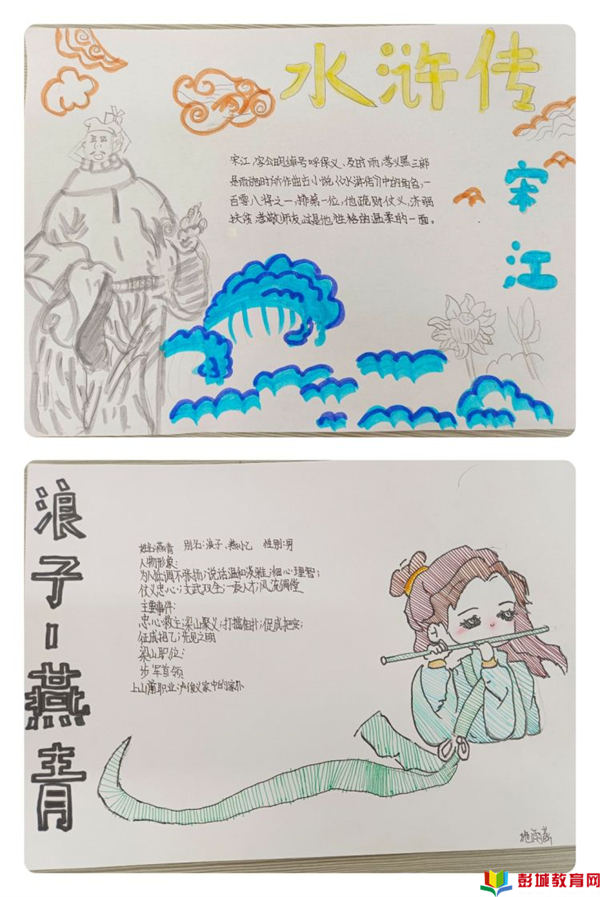 水浒传
宋江
宋江,字公明,绰号呼保义、及时雨、孝义黑三郎
是施耐庵所作古典小说《水浒传》中的角色,一
百零八将之一,排第一位,他疏财仗义,济弱
扶贫,孝敬师友,这是他性格中温柔的一面。
浪子-燕青
姓名:燕青 别名:浪子、燕小乙 性别:男
人物形象:
为人低调不张扬;说话温和凌雅;细心理智;
仗义忠心;文武双全;一表人才;风流倜傥
主要事件:
忠心救主;梁山聚义;打擂相扑;促成招安;
征战;先见之明
梁山职位:
步军首领
上山前职业:卢俊义家中的家仆
彭城教育网